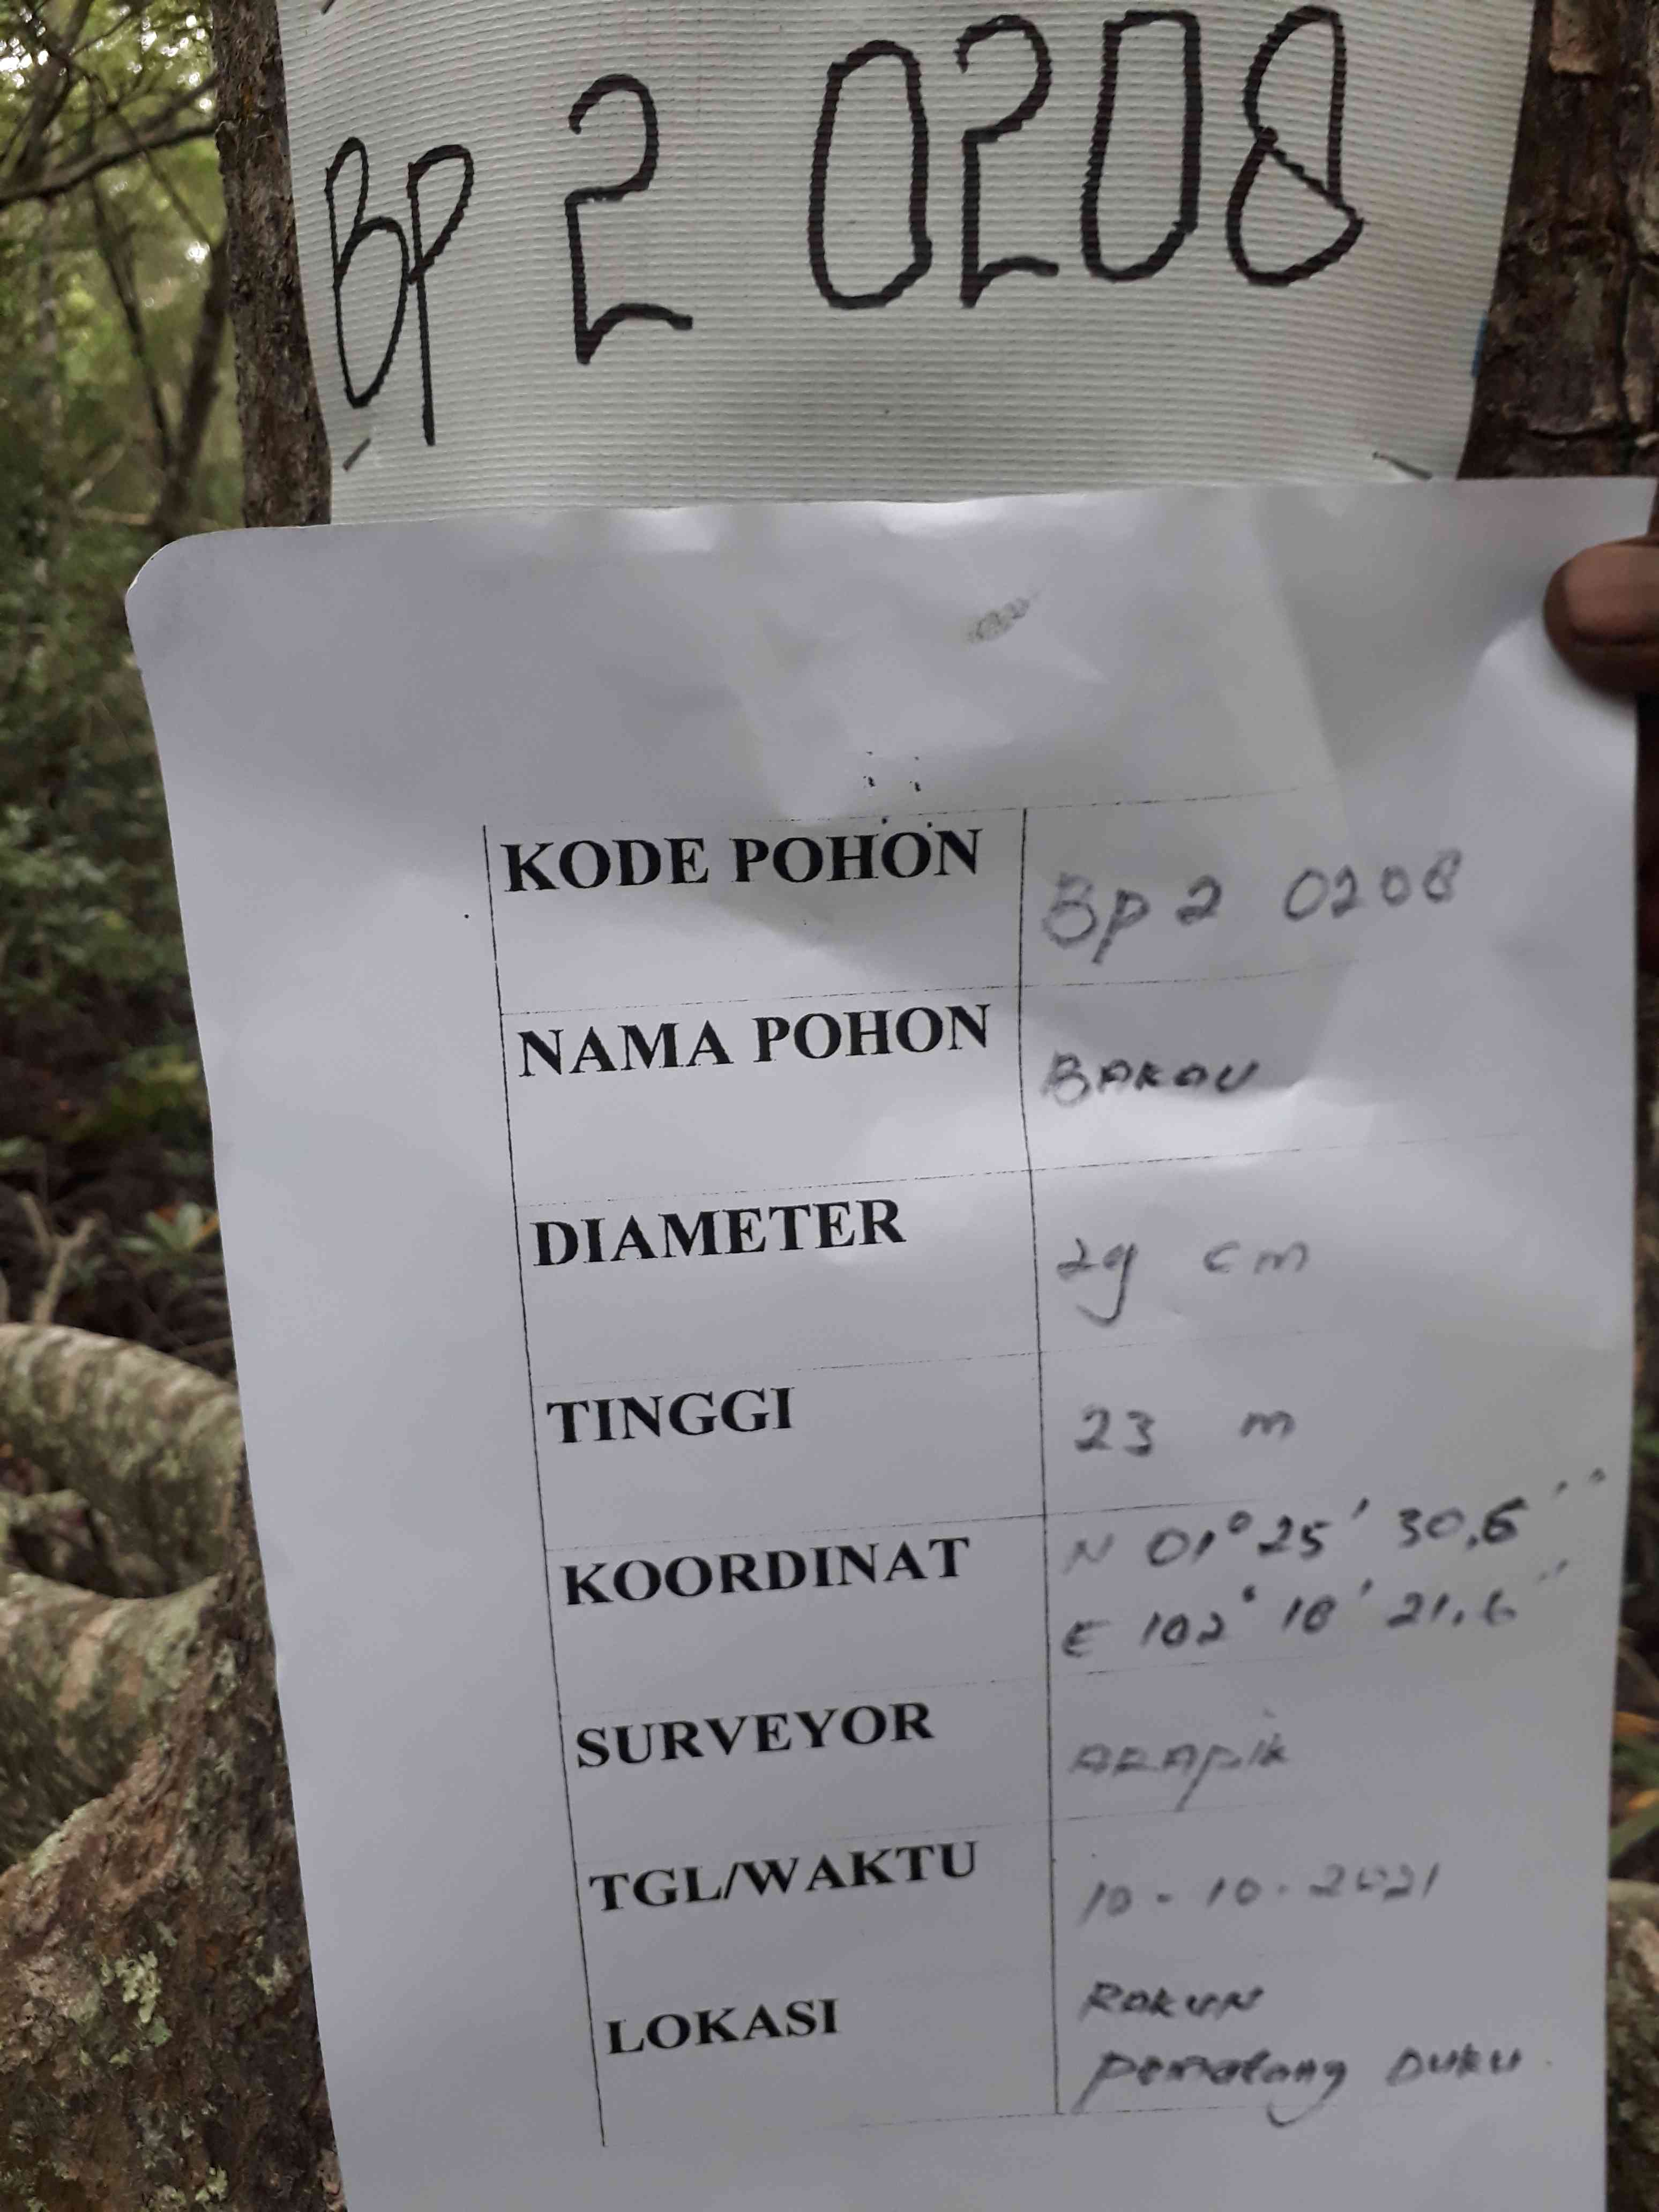 BP 2 0208
KODE POHON BP 2 0208
NAMA POHON BAKAU
DIAMETER 29 cm
TINGGI 23 m
KOORDINAT N 01° 25' 30,6''
E 102° 10' 21,6''
SURVEYOR ARAPIK
TGL/WAKTU 10-10-2021
LOKASI ROKUN
Pematang DUKU